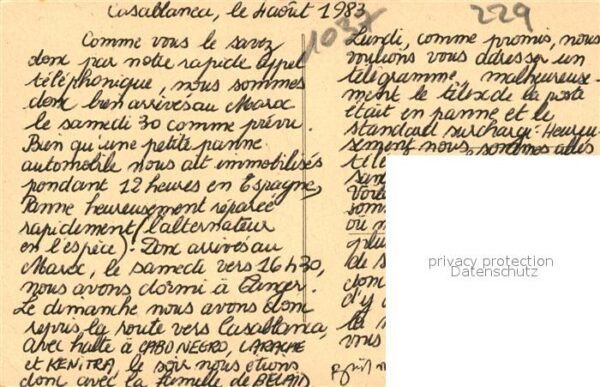 Casablanca, le 4 août 1983
Comme vous le savez
donc par notre rapide appel
téléphonique, nous sommes
donc bien arrivés au Maroc
le samedi 30 comme prévu.
Bien qu'une petite panne
automobile nous ait immobilisés
pendant 12 heures en Espagne,
Panne heureusement réparée
rapidement (l'alternateur
en l'espèce). Donc arrivés au
Maroc, le samedi vers 16h30,
nous avons dormi à Tanger.
Le dimanche nous avons donc
repris la route vers Casablanca,
avec halte à CABO NEGRO, LARACHE
et KENITRA, le soir nous étions
donc avec la famille de BELAID
1037
229
Lundi, comme promis, nous
voulions vous adresser un
télégramme, malheureuse-
ment le télex de la poste
était en panne et le
standard surchargé. Heureu-
sement nous sommes allés
privacy protection
Datenschutz